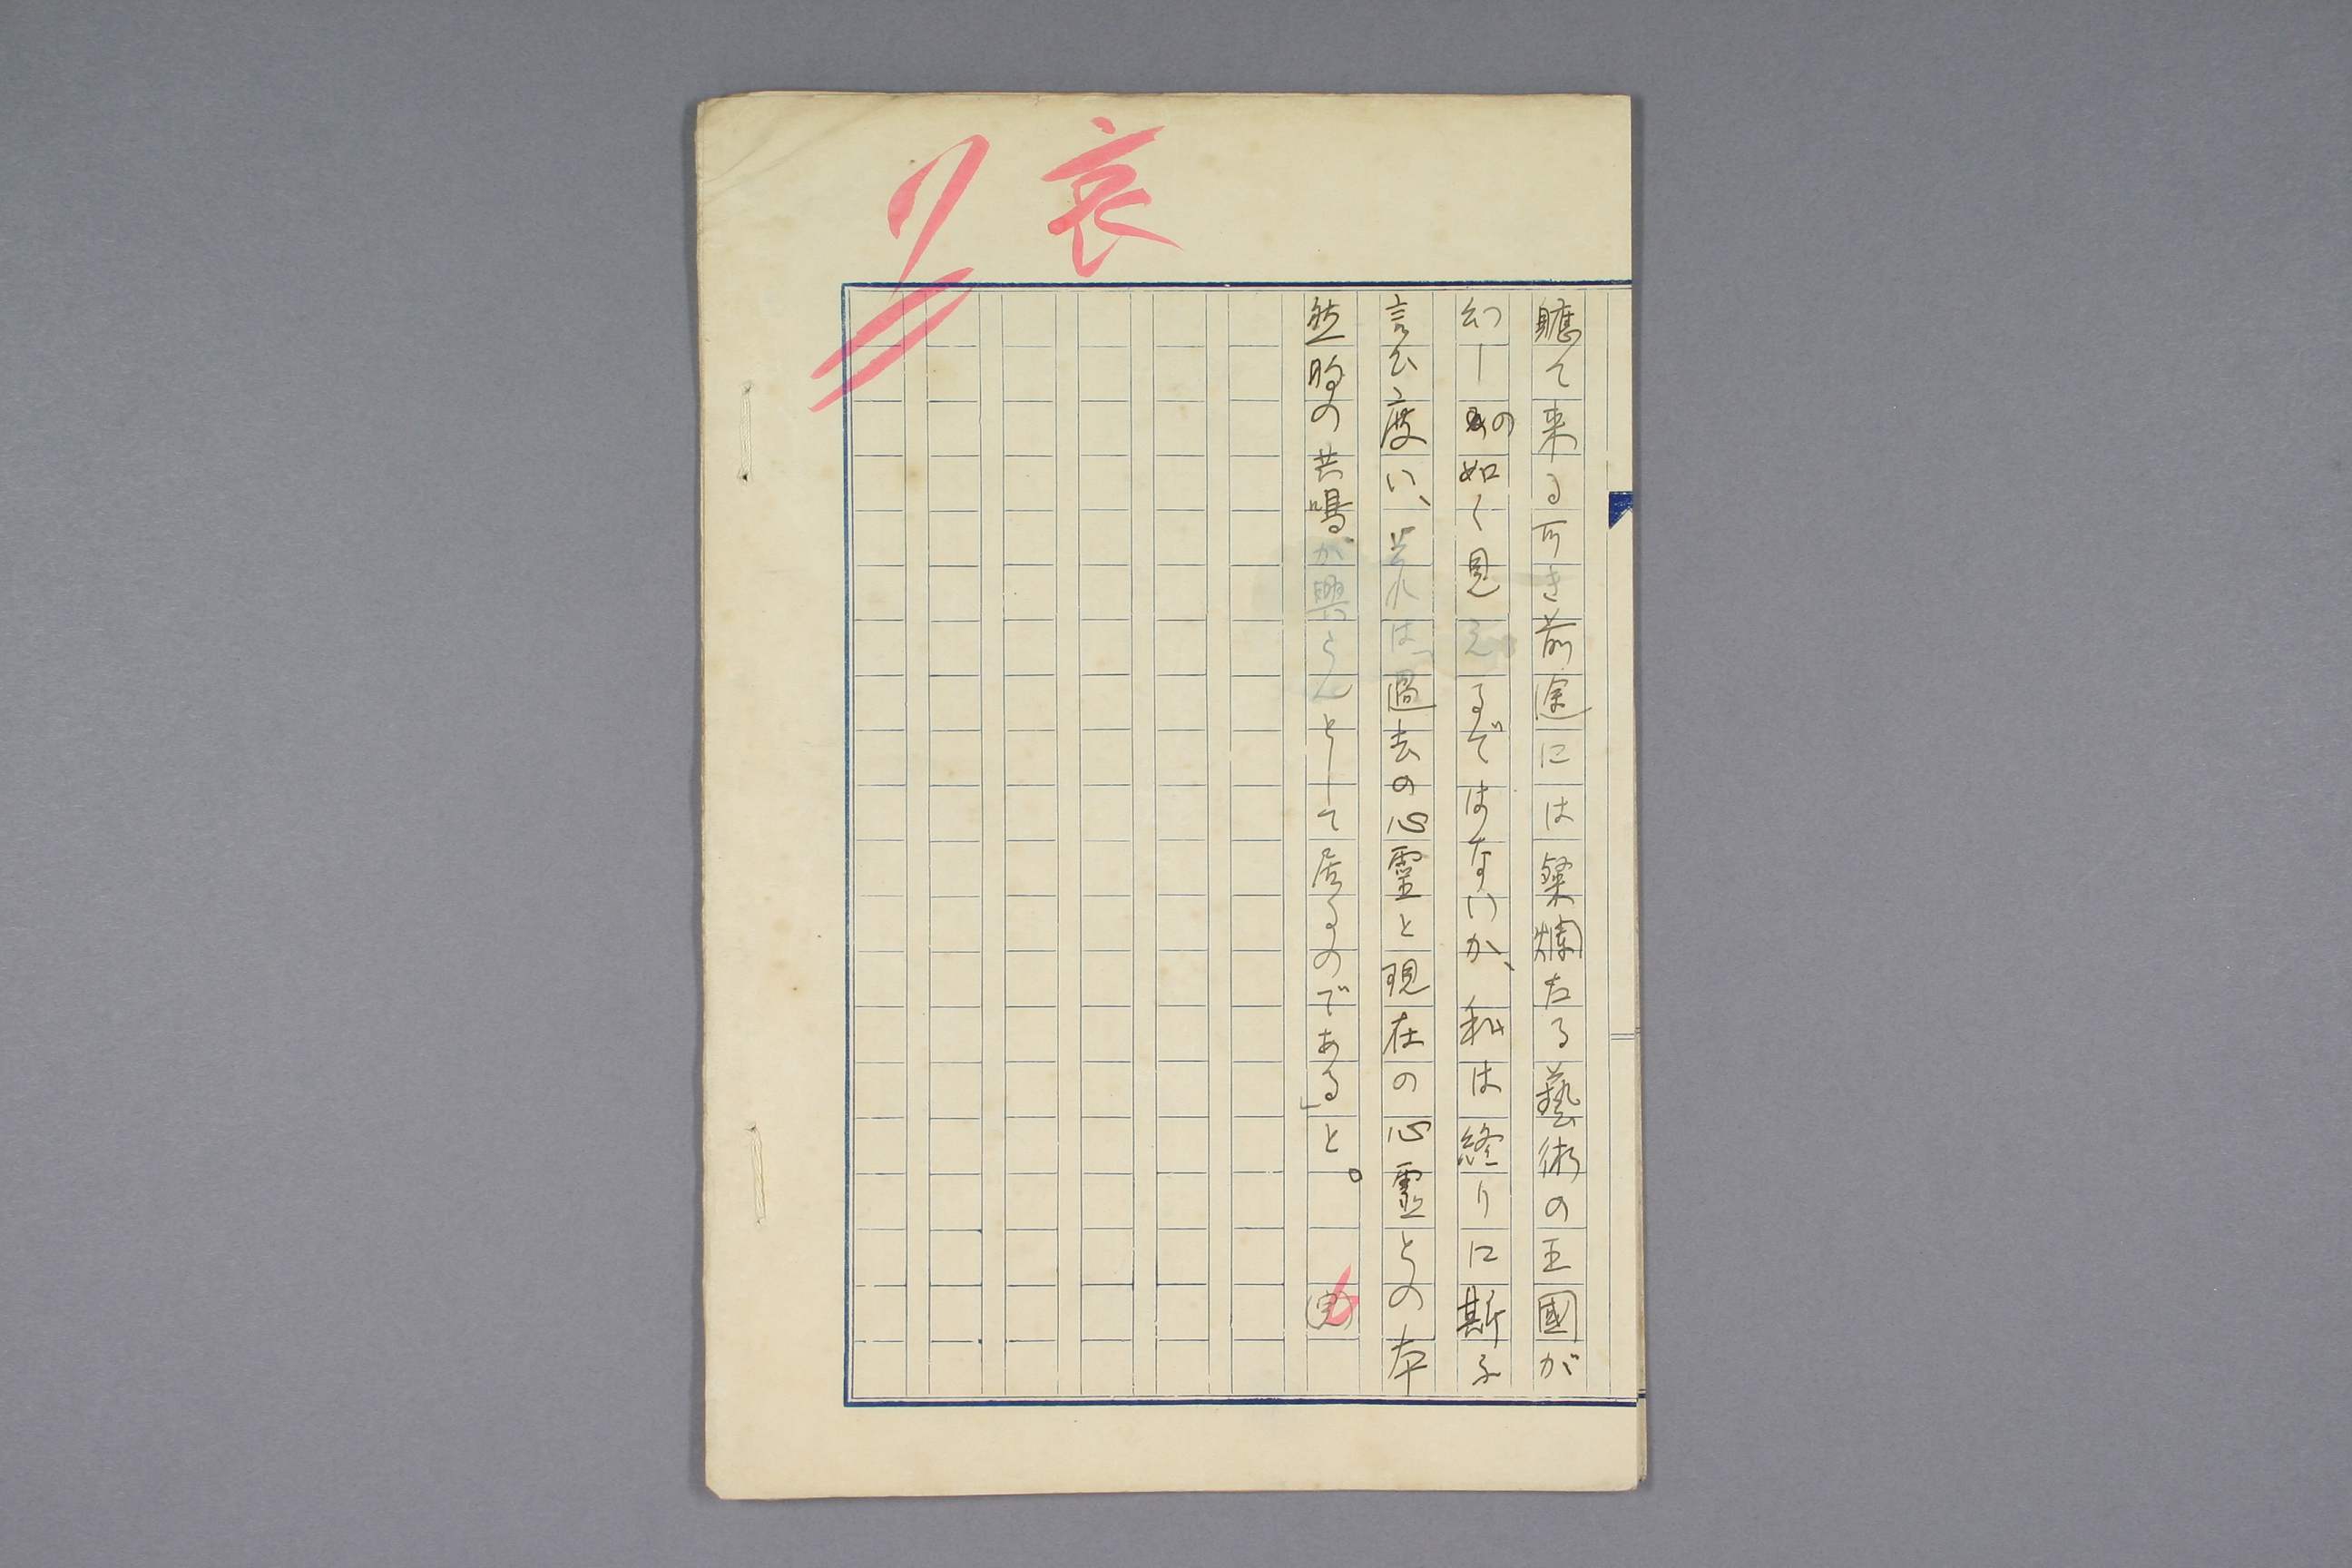 哀
軈て来る可き前途には燦爛たる藝術の王國が
幻しの如く見えるではないか、私は終りに斯う
言ひ度い、若れは「過去の心靈と現在の心靈との本
然的の共鳴が興らんとして居るのである」と。
(完)